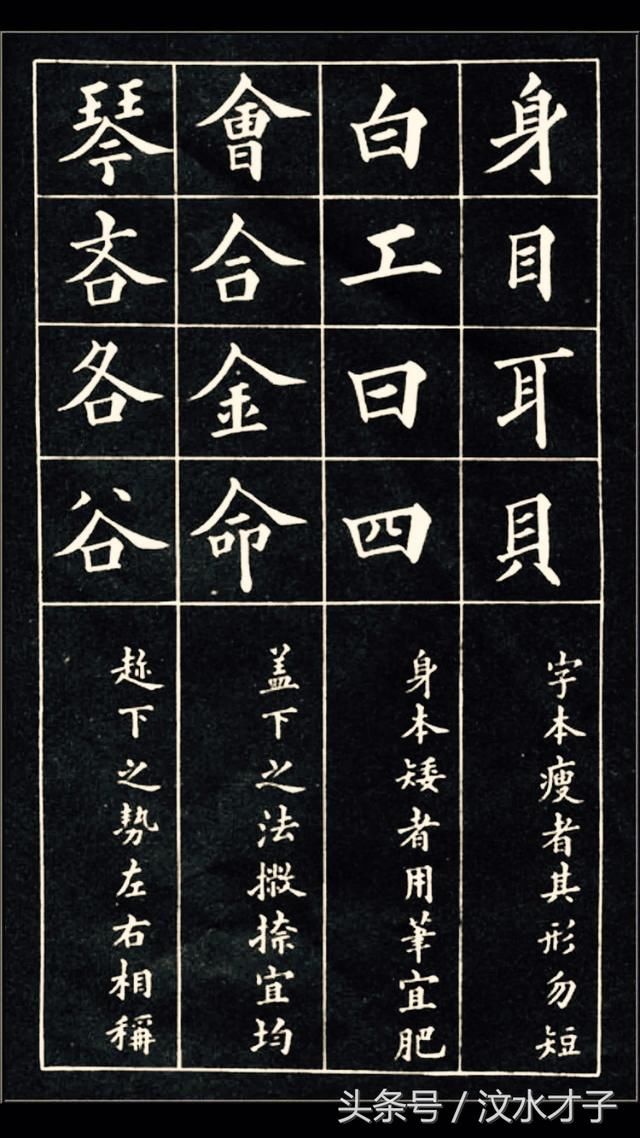 身目耳貝
字本瘦者其形勿短
白工曰四
身本矮者用筆宜肥
會合金命
盖下之法撇捺宜均
琴吝各谷
趂下之勢左右相稱
头条号 / 汶水才子